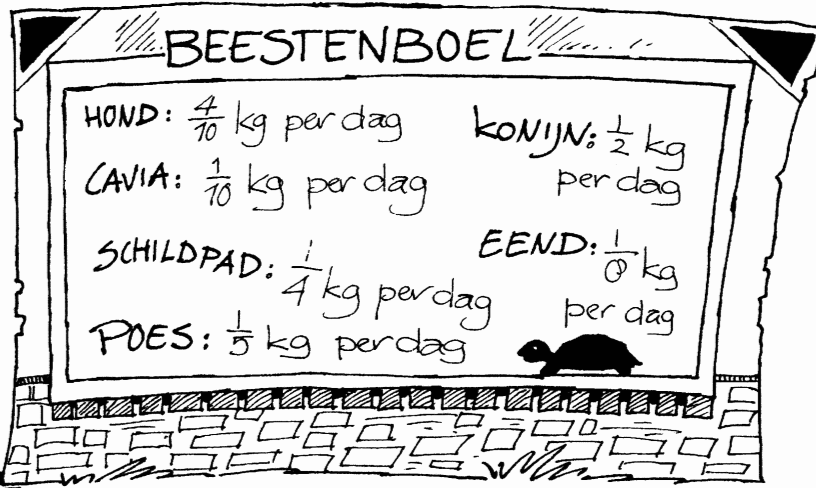 BEESTENBOEL
HOND: 4/10 kg per dag
CAVIA: 1/10 kg per dag
SCHILDPAD: 1/4 kg per dag
POES: 1/5 kg per dag
KONIJN: 1/2 kg
per dag
EEND: 1/8 kg
per dag